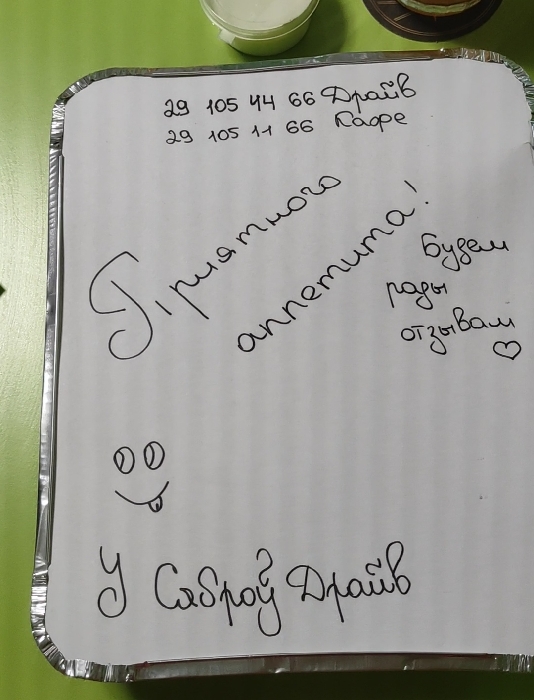 29 105 44 66 Драйв
29 105 11 66 Кафе
Приятного
аппетита!
Будем
рады
отзывам
У Сяброў Драйв